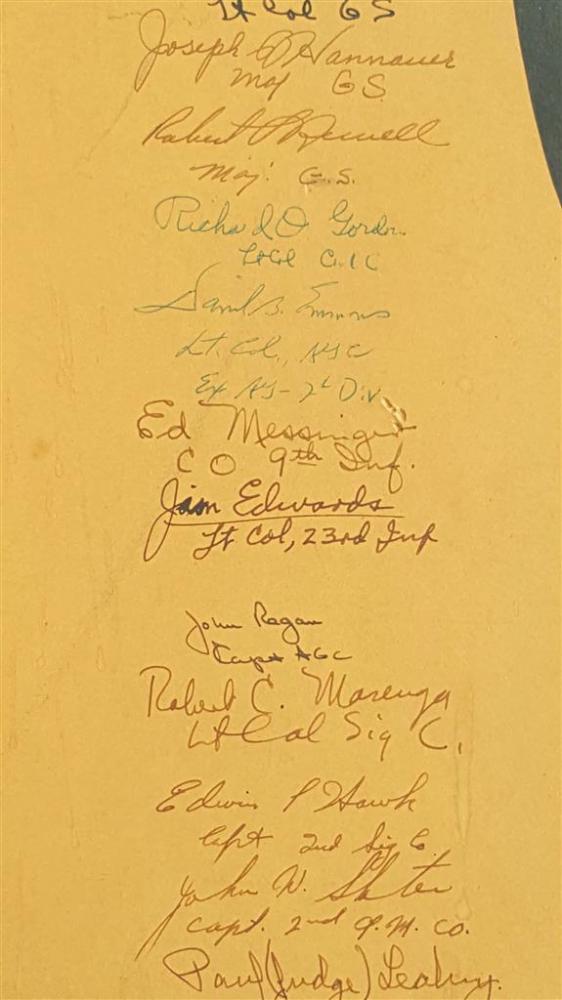 Lt Col GS
Joseph G Hannauer
Maj GS
Robert
Maj. G.S.
Richard O Gordon
Lt Col C.I.C
B. Emmons
Lt. Col., AGC
Ex AG - 2d Div
Ed Messinger
CO 9th Inf.
Jim Edwards
Lt Col, 23rd Inf
John Ragan
Capt AGC
Robert C. Marenga
Lt Col Sig C.
Edwin P Hawk
Capt 2nd Sig C.
John W. Slater
Capt. 2nd Q.M. Co.
Paul (Judge) Leahy.